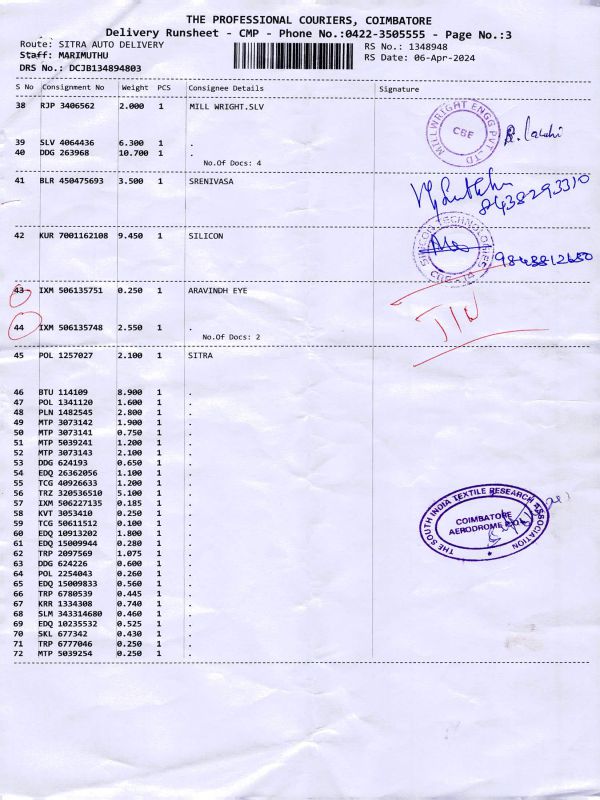 THE PROFESSIONAL COURIERS, COIMBATORE
Delivery Runsheet - CMP - Phone No.:0422-3505555 - Page No.:3
Route: SITRA AUTO DELIVERY
RS No.: 1348948
Staff: MARIMUTHU
RS Date: 06-Apr-2024
DRS No.: DCJB134894803
S No Consignment No Weight PCS Consignee Details Signature
38 RJP 3406562 2.000 1 MILL WRIGHT.SLV
MILLWRIGHT ENGG PVT LTD
CBE
39 SLV 4064436 6.300 1 .
40 DDG 263968 10.700 1 .
No.Of Docs: 4
41 BLR 450475693 3.500 1 SRENIVASA
8438293310
42 KUR 7001162108 9.450 1 SILICON
SILICON TECHNOLOGIES
9843812680
43 IXM 506135751 0.250 1 ARAVINDH EYE
44 IXM 506135748 2.550 1 .
No.Of Docs: 2
45 POL 1257027 2.100 1 SITRA
46 BTU 114109 8.900 1 .
47 POL 1341120 1.600 1 .
48 PLN 1482545 2.800 1 .
49 MTP 3073142 1.900 1 .
50 MTP 3073141 0.750 1 .
51 MTP 5039241 1.200 1 .
52 MTP 3073143 2.100 1 .
53 DDG 624193 0.650 1 .
54 EDQ 26362056 1.100 1 .
55 TCG 40926633 1.200 1 .
56 TRZ 320536510 5.100 1 .
57 IXM 506227135 0.185 1 .
58 KVT 3053410 0.250 1 .
59 TCG 50611512 0.100 1 .
60 EDQ 10913202 1.800 1 .
61 EDQ 15009944 0.280 1 .
62 TRP 2097569 1.075 1 .
63 DDG 624226 0.600 1 .
64 POL 2254043 0.260 1 .
65 EDQ 15009833 0.560 1 .
66 TRP 6780539 0.445 1 .
67 KRR 1334308 0.740 1 .
68 SLM 343314680 0.460 1 .
69 EDQ 10235532 0.525 1 .
70 SKL 677342 0.430 1 .
71 TRP 6777046 0.250 1 .
72 MTP 5039254 0.250 1 .
THE SOUTH INDIA TEXTILE RESEARCH ASSOCIATION
COIMBATORE
AERODROME